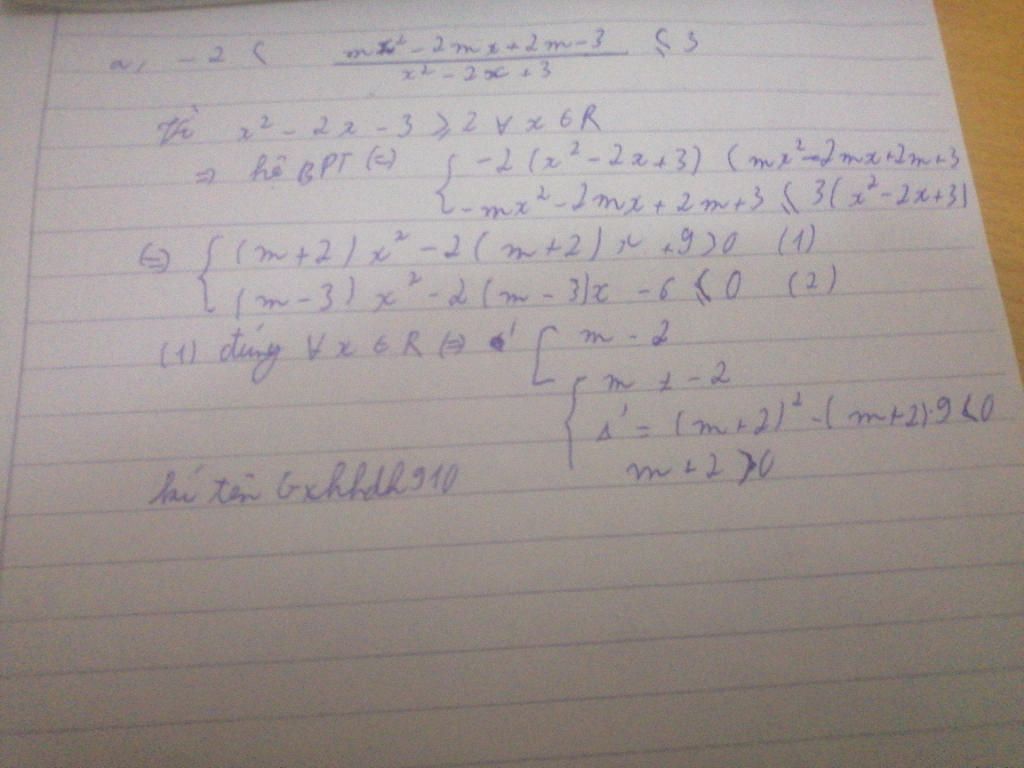 a, -2 < (mx² - 2mx + 2m - 3)/(x² - 2x + 3) ≤ 3
Vì x² - 2x - 3 ≥ 2 ∀ x ∈ R
⇒ hệ BPT ⇔ { -2(x² - 2x + 3) < mx² - 2mx + 2m + 3
-mx² - 2mx + 2m + 3 ≤ 3(x² - 2x + 3)
⇔ { (m+2)x² - 2(m+2)x + 9 > 0 (1)
(m-3)x² - 2(m-3)x - 6 ≤ 0 (2)
(1) đúng ∀ x ∈ R ⇔ [ m - 2
{ m ≠ -2
Δ' = (m+2)² - (m+2).9 < 0
m + 2 > 0
kí tên Gxhhdh910